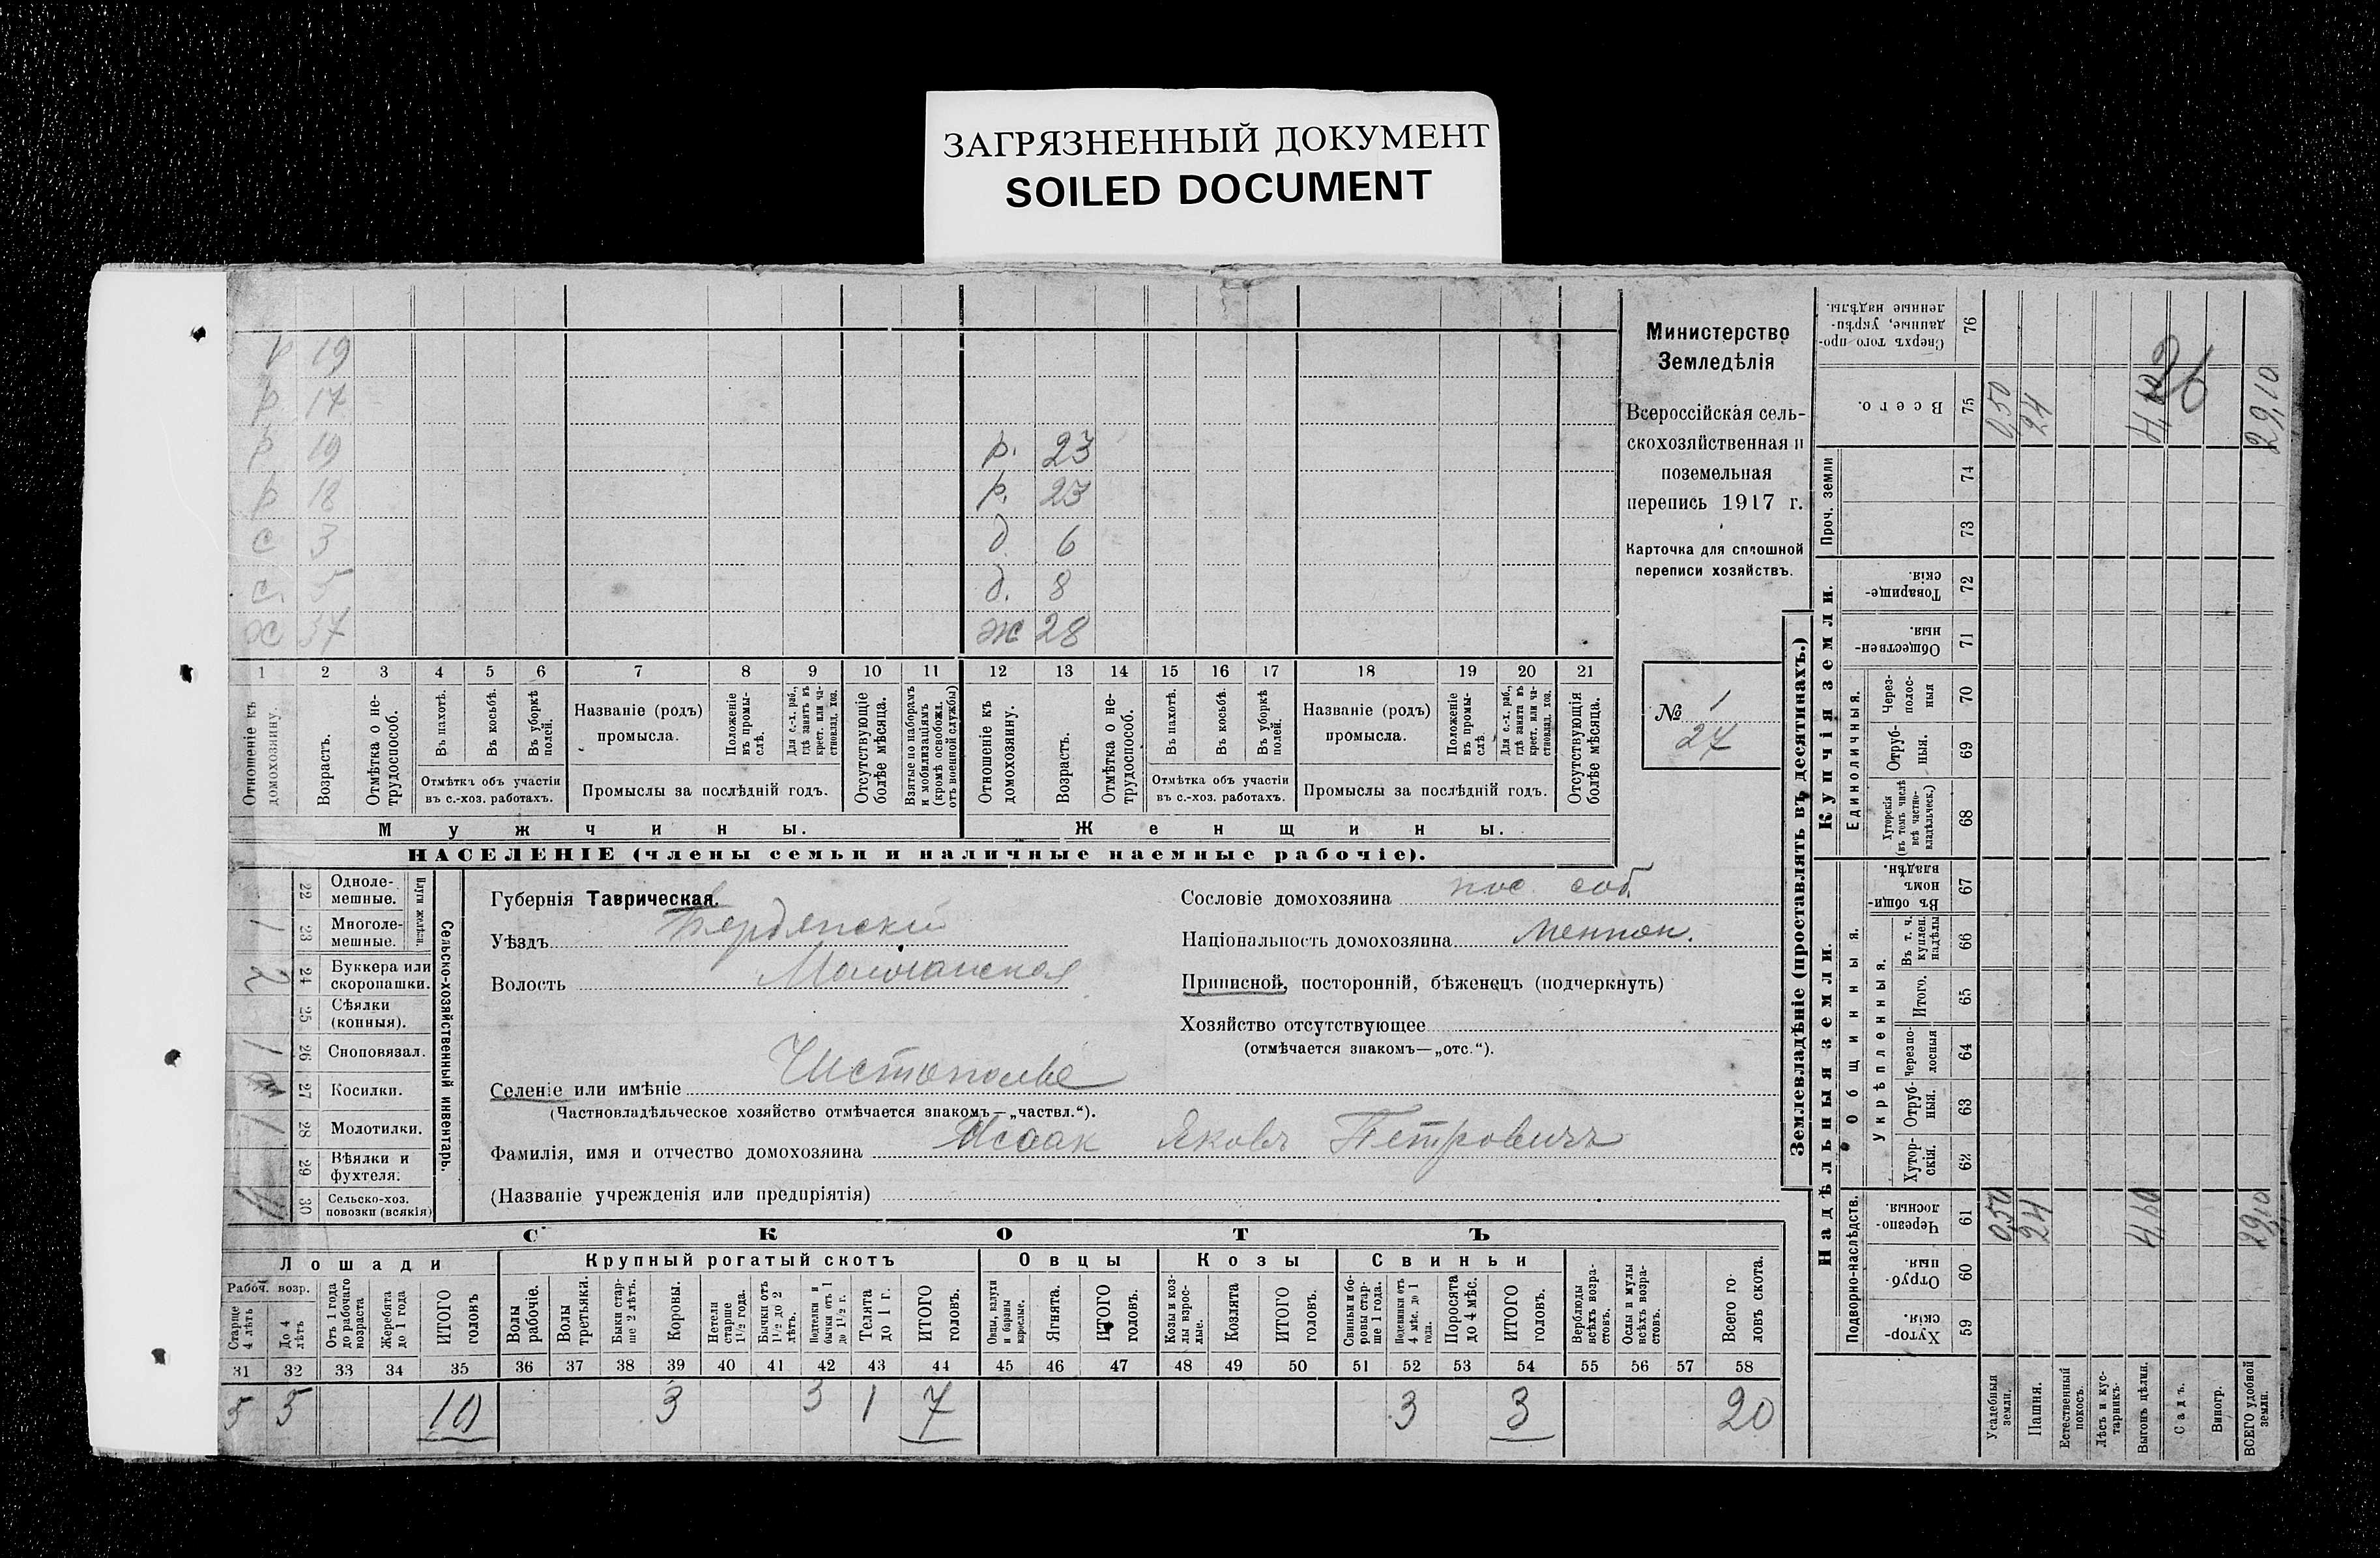 ЗАГРЯЗНЕННЫЙ ДОКУМЕНТ
SOILED DOCUMENT
р 19
р 17
р 19
р 18
с 3
с. 5
ж 37
р. 23
р. 23
д 6
д. 8
ж 28
1 2 3 4 5 6 7 8 9 10 11 12 13 14 15 16 17 18 19 20 21
Отношеніе къ домохозяину.
Возрастъ.
Отмѣтка о не-трудоспособ.
Въ пахотѣ.
Въ косьбѣ.
Въ уборкѣ полей.
Отмѣтка объ участіи
въ с.-хоз. работахъ.
Названіе (родъ)
промысла.
Положеніе въ промы-слѣ.
Для с.-х. раб., гдѣ занятъ въ крест. или ча-стновлад. хоз.
Промыслы за послѣдній годъ.
Отсутствующіе болѣе мѣсяца.
Взятые по наборамъ и мобилизаціямъ (кромѣ освобожд. отъ военной службы)
Отношеніе къ домохозяину.
Возрастъ.
Отмѣтка о не-трудоспособ.
Въ пахотѣ.
Въ косьбѣ.
Въ уборкѣ полей.
Отмѣтка объ участіи
въ с.-хоз. работахъ.
Названіе (родъ)
промысла.
Положеніе въ промы-слѣ
Для с.-х. раб., гдѣ занята въ крест. или ча-стновлад. хоз.
Промыслы за послѣдній годъ.
Отсутствующія болѣе мѣсяца.
Мужчины.
Женщины.
НАСЕЛЕНІЕ (члены семьи и наличные наемные рабочіе).
Министерство
Земледѣлія
Всероссійская сель-
скохозяйственная и
поземельная
перепись 1917 г.
Карточка для сплошной
переписи хозяйствъ.
№ 1
27
22 Одноле-
мешные.
23 Многоле-
мешные. 1
24 Буккера или
скоропашки. 2
25 Сѣялки
(конныя).
26 Сноповязал. 1
27 Косилки.
28 Молотилки. 1
29 Вѣялки и
фухтеля.
30 Сельско-хоз.
повозки (всякія)
Сельско-хозяйственный инвентарь.
Губернія Таврическая.
Уѣздъ Бердянскій
Волость Молочанская
Селеніе или имѣніе Чистополье
(Частновладѣльческое хозяйство отмѣчается знакомъ—„частвл.“).
Фамилія, имя и отчество домохозяина Исаак Яковъ Петровичъ
(Названіе учрежденія или предпріятія)
Сословіе домохозяина пос. соб.
Національность домохозяина Меннон.
Приписной, посторонній, бѣженецъ (подчеркнуть)
Хозяйство отсутствующее
(отмѣчается знакомъ—„отс.“).
СКОТЪ
Лошади
Крупный рогатый скотъ
Овцы
Козы
Свиньи
Рабоч. возр.
Старше 4 лѣтъ
До 4 лѣтъ
Отъ 1 года до рабочаго возраста
Жеребята до 1 года
ИТОГО головъ
Волы рабочіе.
Волы третьяки.
Быки стар-ше 2 лѣтъ.
Коровы.
Нетели старше 1½ года.
Бычки отъ 1½ до 2 лѣтъ.
Подтелки и бычки отъ 1 до 1½ г.
Телята до 1 г.
ИТОГО головъ.
Овцы, валухи и бараны взрослые.
Ягнята.
ИТОГО головъ.
Козы и коз-лы взрос-лые.
Козлята
ИТОГО головъ.
Свиньи и бо-ровы стар-ше 1 года.
Подсвинки отъ 4 мѣс. до 1 года.
Поросята до 4 мѣс.
ИТОГО головъ.
Верблюды всѣхъ возра-стовъ.
Ослы и мулы всѣхъ возра-стовъ.
Всего го-ловъ скота.
31 32 33 34 35 36 37 38 39 40 41 42 43 44 45 46 47 48 49 50 51 52 53 54 55 56 57 58
5 5 10 3 3 1 7 3 3 20
Землевладѣніе (проставлять въ десятинахъ.)
Купчія земли.
Надѣльныя земли.
Проч. земли
Единоличныя.
Общинныя.
Укрѣпленныя.
Подворно-наслѣдств.
Сверхъ того про-данные, укрѣп-ленные надѣлы. 76
Всего. 75
74
73
Товарище-скія. 72
Обществен-ныя. 71
Через-полос-ныя 70
Отруб-ныя. 69
Хуторскія (въ томъ числѣ всѣ частно-владѣльческ.) 68
Въ общин-номъ владѣн. 67
Въ т. ч. куплен. надѣлы 66
Итого. 65
Черезпо-лосныя 64
Отруб-ныя. 63
Хутор-скія. 62
Черезпо-лосныя. 61
Отруб-ныя. 60
Хутор-скія. 59
Усадебныя земли. 0,50 0,50
Пашня. 24 24
Естественный покосъ.
Лѣсъ и кус-тарникъ.
Выгонъ цѣлин. 4,60
Садъ.
Виногр.
ВСЕГО удобной земли. 29,10 29,10
26